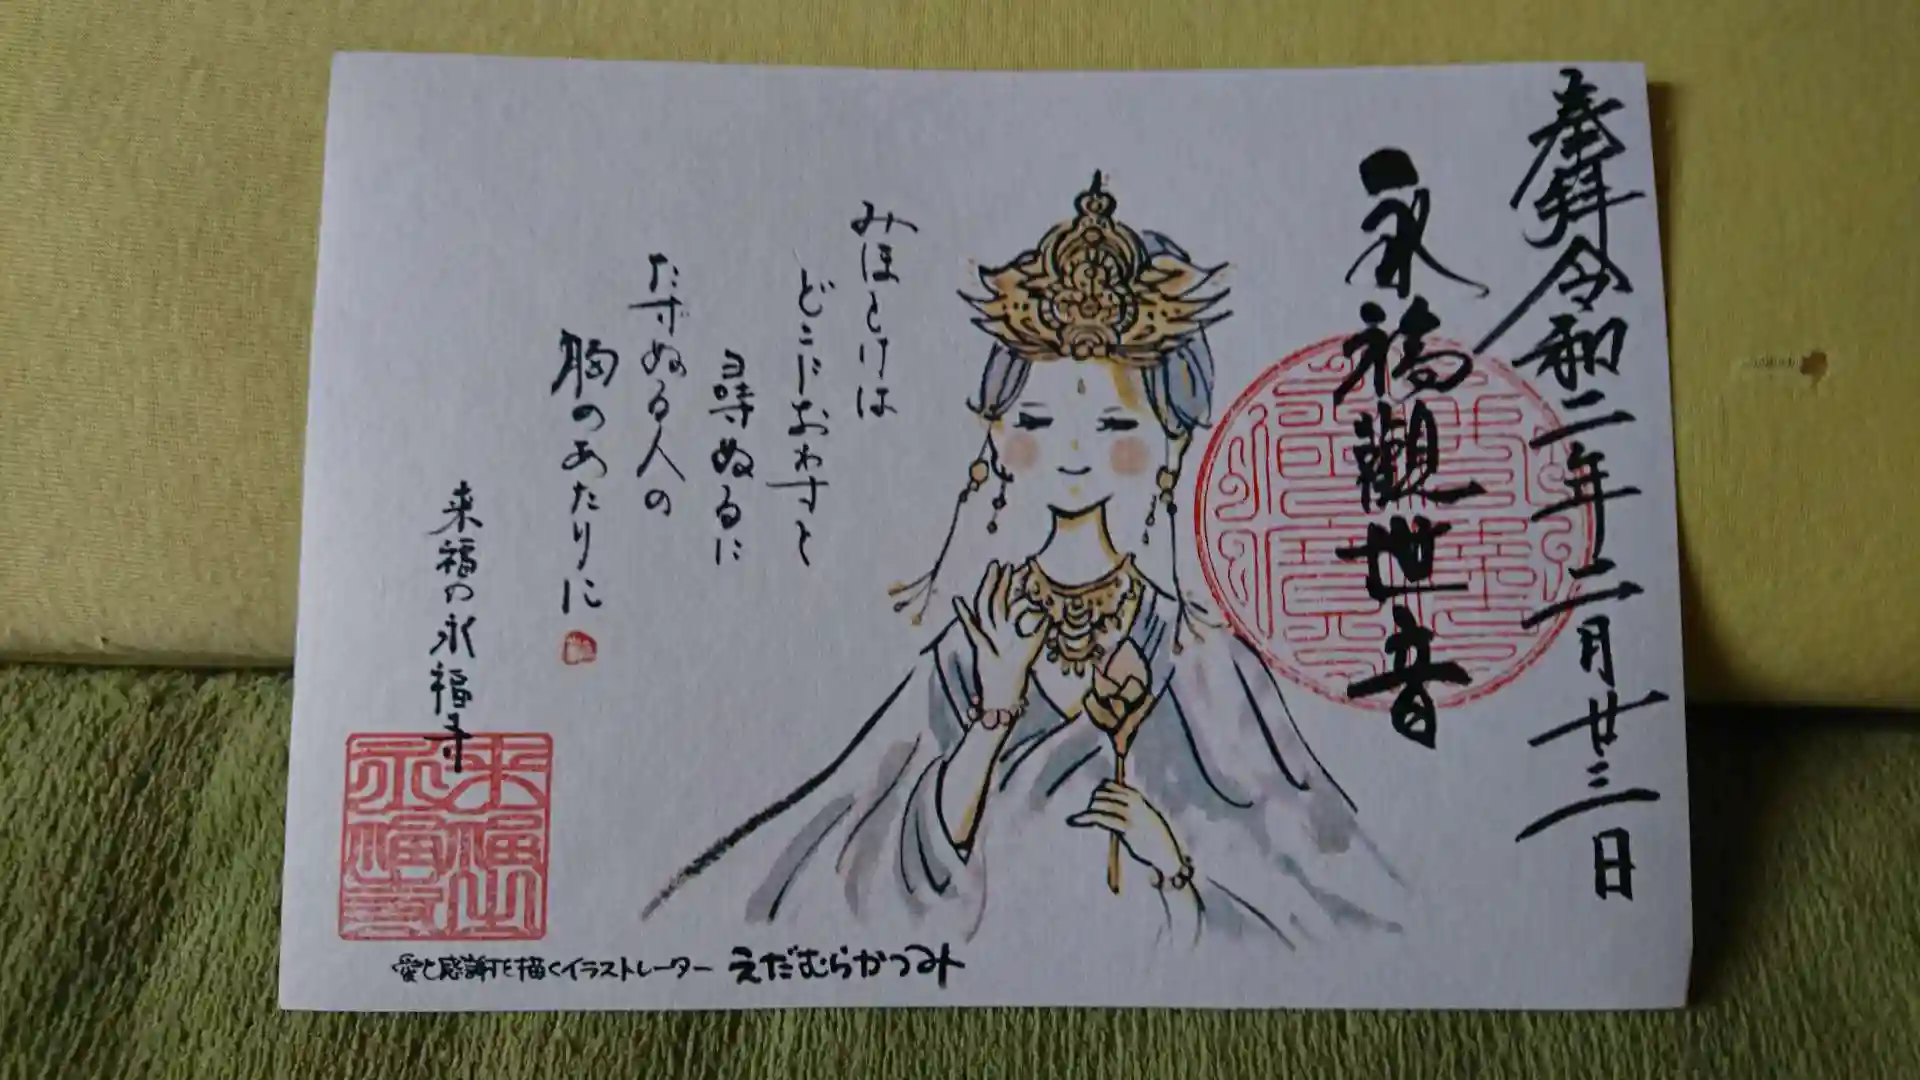 奉拝 令和二年二月廿三日
永福觀世音
みほとけは
どこにおわすと
尋ぬるに
たずぬる人の
胸のあたりに
来福の永福寺
来福山永福寺
愛と感謝を描くイラストレーター えだむらかつみ